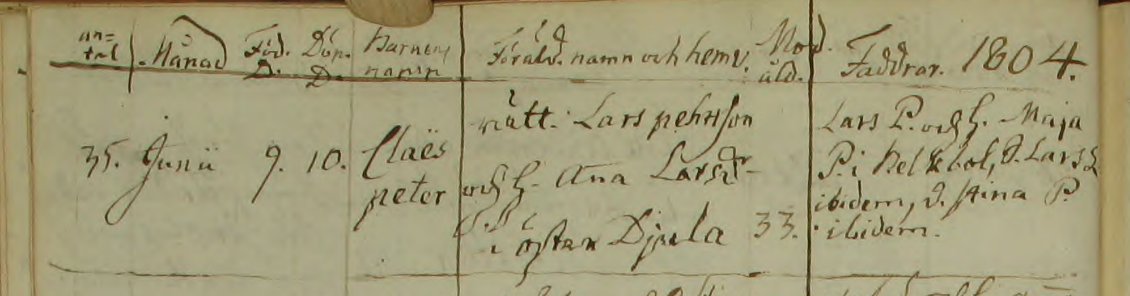 an= Månad Föd. Döp. Barnens Föräld. namn och hemv. Mod. Faddrar. 1804.
tal D. D. namn åld.
rätt. Lars pehrsson Lars P. och h. Maja
35. Junii 9. 10. Claës P. i
peter och h. Ana Larsdr D. Lars
ibidem, d. Stina P.
i östan Djula 33. ibidem.